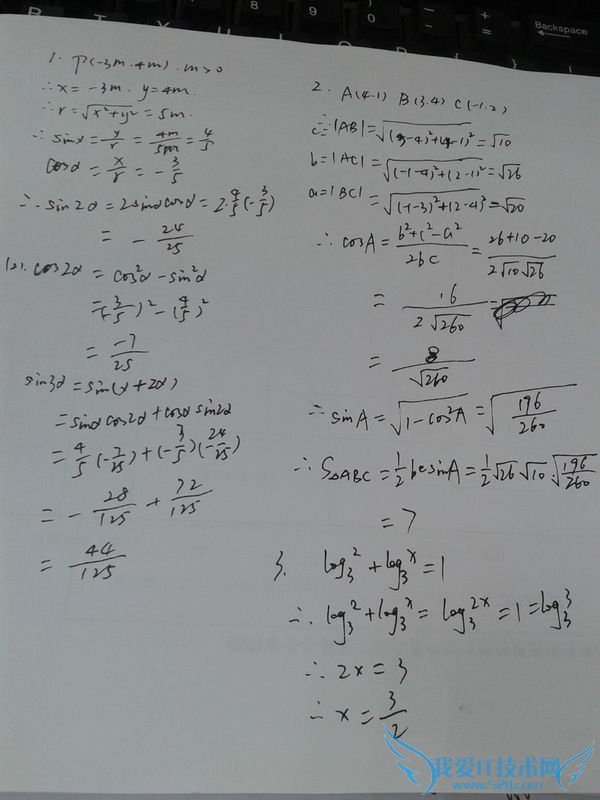 Backspace
1. P(-3m.4m).m>0
∴x=-3m. y=4m.
∴r=√(x²+y²)=5m.
∴sinα=y/r=4m/5m=4/5
cosα=x/r=-3/5
∴sin2α=2sinαcosα=2·4/5(-3/5)
=-24/25
(2). cos2α=cos²α-sin²α
=(-3/5)²-(4/5)²
=-7/25
sin3α=sin(α+2α)
=sinαcos2α+cosαsin2α
=4/5(-7/25)+(-3/5)(-24/25)
=-28/125+72/125
=44/125
2. A(4.1) B(3.4) C(-1.2)
c=|AB|=√((3-4)²+(4-1)²)=√10
b=|AC|=√((-1-4)²+(2-1)²)=√26
a=|BC|=√((-1-3)²+(2-4)²)=√20
∴cosA=(b²+c²-a²)/2bc=(26+10-20)/(2√10√26)
=16/(2√260)
=8/√260
∴sinA=√(1-cos²A)=√(196/260)
∴S△ABC=1/2bcsinA=1/2√26√10·√(196/260)
=7
3. log₃2+log₃x=1
∴log₃2+log₃x=log₃2x=1=log₃3
∴2x=3
∴x=3/2
我爱IT技术网
www.52ij.com